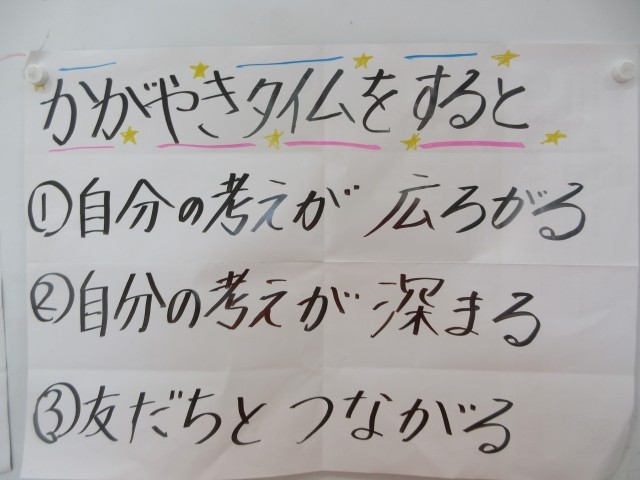 かがやきタイムをすると
①自分の考えが 広ろがる
②自分の考えが 深まる
③友だちと つながる